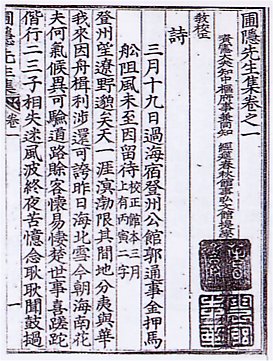 圃隱先生集卷之一
資憲大夫知中樞府事兼同知 經筵春秋館事弘文館提學
敎校
詩
三月十九日過海宿登州公館郭通事金押馬
舩阻風未至因留待 校正舊本三月上有丙寅二字
登州望遼野邈矣天一涯溟渤限其間地分夷與華
我來因舟楫利涉還可誇昨日海北雪今朝海南花
夫何氣候異可驗道路賖客懷易悽楚世事喜蹉跎
偕行二三子相失迷風波終夜苦憶念耿耿聞鼓撾
圃隱先生集 卷一 一